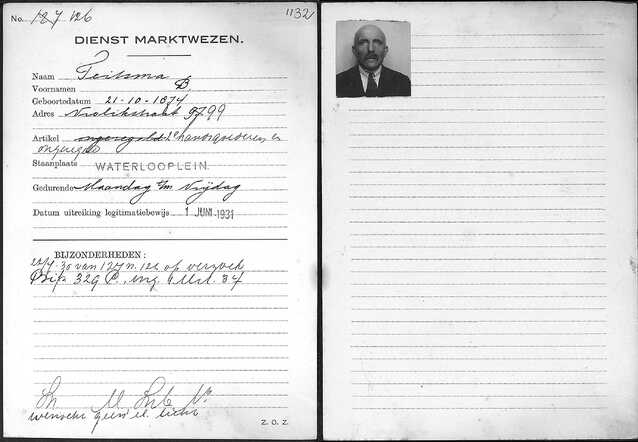 No. 187/126 1132
DIENST MARKTWEZEN.
Naam Teitsma
Voornamen B
Geboortedatum 21-10-1874
Adres 99
Artikel ongeregeld 2e handsgoederen en
ongeregeld
Staanplaats WATERLOOPLEIN.
Gedurende Maandag t/m Vrijdag
Datum uitreiking legitimatiebewijs 1 JUNI 1931
BIJZONDERHEDEN:
30 van 127 n. 126 op verzoek
329 ing. 1 Mrt. 34
wenscht geen el. licht
Z. O. Z.